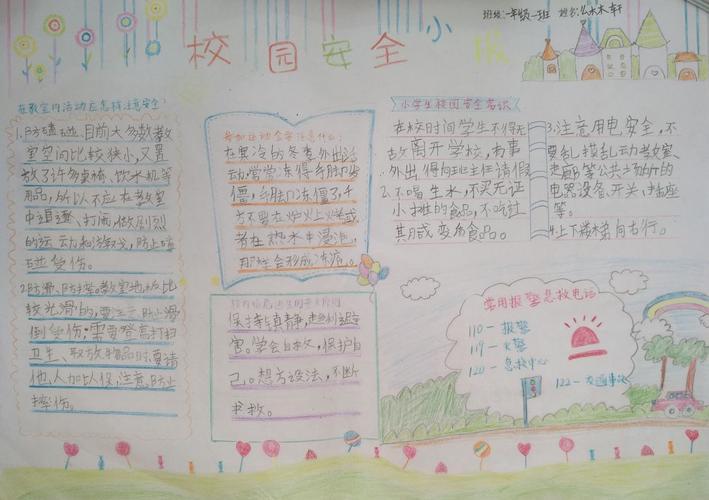 校园安全小报
班级:一年级一班 姓名:
在教室内活动应怎样注意安全
1.防磕碰,目前大多数教
室空间比较狭小,又置
放了许多桌椅、饮水机等
用品,所以不应在教室
中追逐、打闹,做剧烈
的运动和游戏,防止磕
碰受伤。
2.防滑、防摔,教室地板比
较光滑的,要注意防止滑
倒受伤;需要登高打扫
卫生、取放物品时,要请
他人加以保护,注意防止
摔伤。
参加运动会要注意什么:
在寒冷的冬季,外出活
动,常常冻得手脚步
僵,手脚冻僵了,千
万不要在炉火上烘烤或
者在热水中浸泡,
那样会形成冻疮。
保持镇静,趋利避
害。学会自救,保护自
己。想方设法,不断
求救。
小学生校园安全常识
在校时间学生不得无
故离开学校,有事
外出得向班主任请假
2.不喝生水,不买无证
小摊的食品,不吃过
期或变质食品。
3.注意用电安全,不
要乱摸乱动教室、
走廊等公共场所的
电器设备、开关、插座
等。
4.上下楼梯向右行。
常用报警急救电话
110—报警
119—火警
120—急救中心
122—交通事故